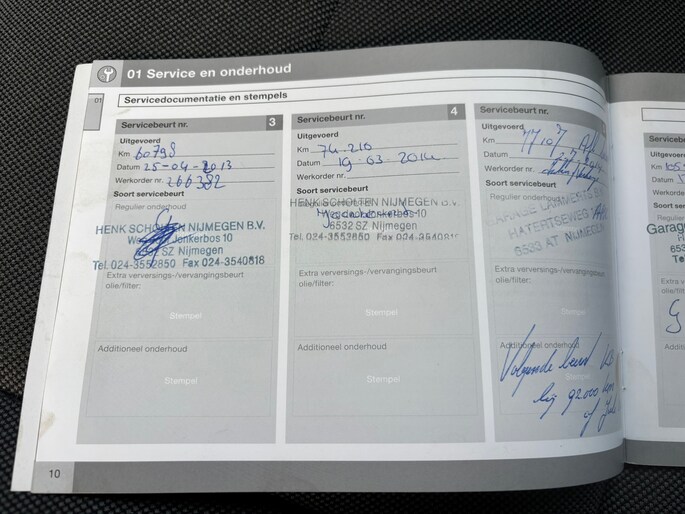 01 Service en onderhoud
01
Servicedocumentatie en stempels
Servicebeurt nr. 3
Uitgevoerd
Km 60798
Datum 25-04-2013
Werkorder nr. 266382
Soort servicebeurt
Regulier onderhoud
HENK SCHOLTEN NIJMEGEN B.V.
Jonkerbos 10
6532 SZ Nijmegen
Tel. 024-3552850 Fax 024-3540818
Extra verversings-/vervangingsbeurt
olie/filter:
Stempel
Additioneel onderhoud
Stempel
Servicebeurt nr. 4
Uitgevoerd
Km 74.210
Datum 19-03-2014
Werkorder nr.
Soort servicebeurt
HENK SCHOLTEN NIJMEGEN B.V.
6532 SZ Nijmegen
Tel. 024-3552850 Fax 024-354081
Extra verversings-/vervangingsbeurt
olie/filter:
Stempel
Additioneel onderhoud
Stempel
Servicebeurt nr.
Uitgevoerd
Km 77107
Datum
Werkorder nr.
Soort servicebeurt
Regulier onderhoud
GARAGE
HATERTSEWEG
6533 AT NIJMEGEN
Extra verversings-/vervangingsbeurt
olie/filter:
Stempel
Additioneel onderhoud
Volgende beurt
bij 92.000 km
of
10
Uitgevoerd
Km
Datum
Werkorder
Soort se
Regulier
Garag
Extra ve
olie/filte
Additio